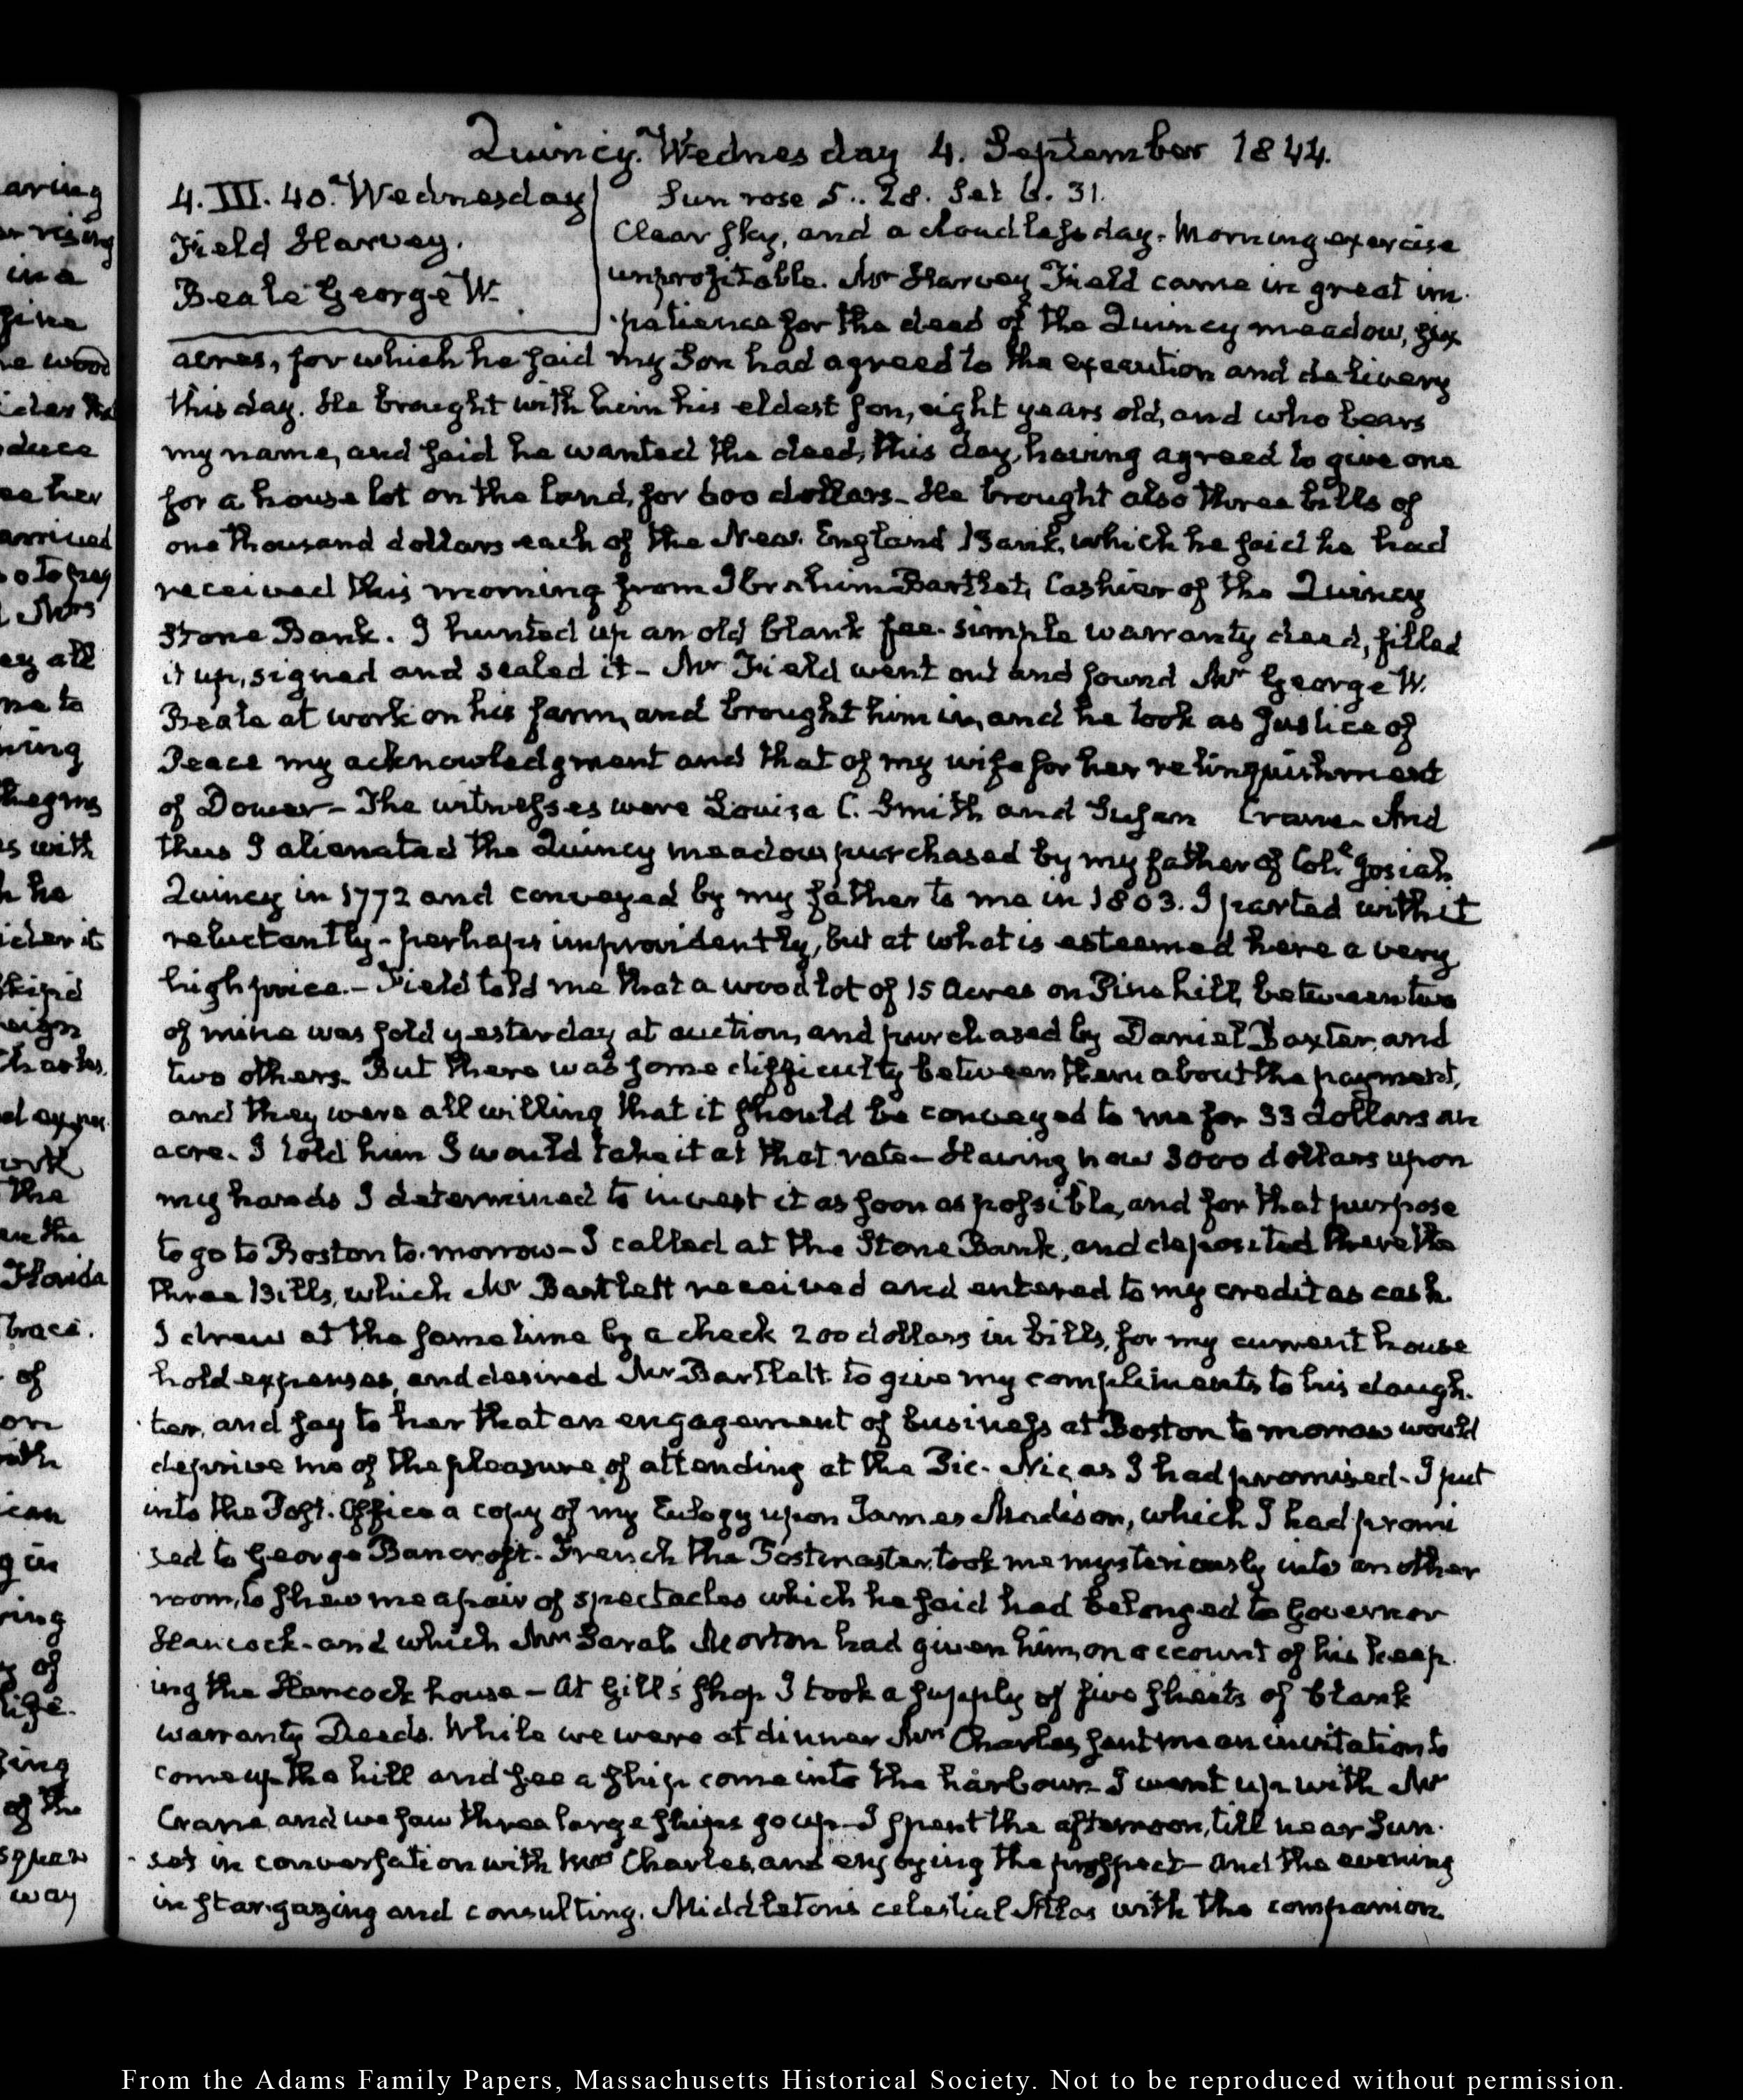 Quincy. Wednesday 4. September 1844.
4. III. 40. Wednesday
Field Harvey.
Beale George W.
Sun rose 5..28. Set 6.31.
Clear sky, and a cloudless day. Morning exercise
unprofitable. Mr Harvey Field came in great im-
patience for the deed of the Quincy meadow, six
acres, for which he said my Son had agreed to the execution and delivery
this day. He brought with him his eldest son, eight years old, and who bears
my name, and said he wanted the deed, this day, having agreed to give one
for a house lot on the land, for 600 dollars. He brought also three bills of
one thousand dollars each of the New England Bank, which he said he had
received this morning from Ibrahim Bartlet, Cashier of the Quincy
Stone Bank. I hunted up an old blank fee-simple warranty deed, filled
it up, signed and sealed it - Mr Field went out and found Mr George W.
Beale at work on his farm, and brought him in, and he took as Justice of
Peace my acknowledgment and that of my wife for her relinquishment
of Dower - The witnesses were Louisa C. Smith and Susan Crane. And
thus I alienated the Quincy meadow, purchased by my father of Coll. Josiah
Quincy in 1772 and conveyed by my father to me in 1803. I parted with it
reluctantly - perhaps improvidently, but at what is esteemed here a very
high price. - Field told me that a wood lot of 15 Acres on Pine hill, between two
of mine was sold yesterday at auction, and purchased by Daniel Baxter, and
two others. But there was some difficulty between them about the payment,
and they were all willing that it should be conveyed to me for 33 dollars an
acre. I told him I would take it at that rate - Having now 3000 dollars upon
my hands I determined to invest it as soon as possible, and for that purpose
to go to Boston to-morrow - I called at the Stone Bank, and deposited there the
three Bills, which Mr Bartlett received and entered to my credit as cash.
I drew at the same time by a check 200 dollars in bills, for my current house
hold expenses, and desired Mr Bartlett to give my compliments to his daugh-
ter, and say to her that an engagement of business at Boston to morrow would
deprive me of the pleasure of attending at the Pic-Nic as I had promised - I put
into the Post-Office a copy of my Eulogy upon James Madison, which I had promi
sed to George Bancroft. French the Postmaster, took me mysteriously into another
room, to shew me a pair of spectacles which he said had belonged to Governor
Hancock - and which Mrs Sarah Morton had given him, on account of his keep-
ing the Hancock house - At Gill's shop I took a supply of five sheets of blank
warranty Deeds. While we were at dinner Mrs Charles sent me an invitation to
come up the hill and see a ship come into the harbour I went up with Mr
Crane, and we saw three large ships go up - I spent the afternoon, till near Sun-
set in conversation with Mrs Charles, and enjoying the prospect - and the evening
in star-gazing and consulting. Middleton's celestial Atlas with the companion
From the Adams Family Papers, Massachusetts Historical Society. Not to be reproduced without permission.